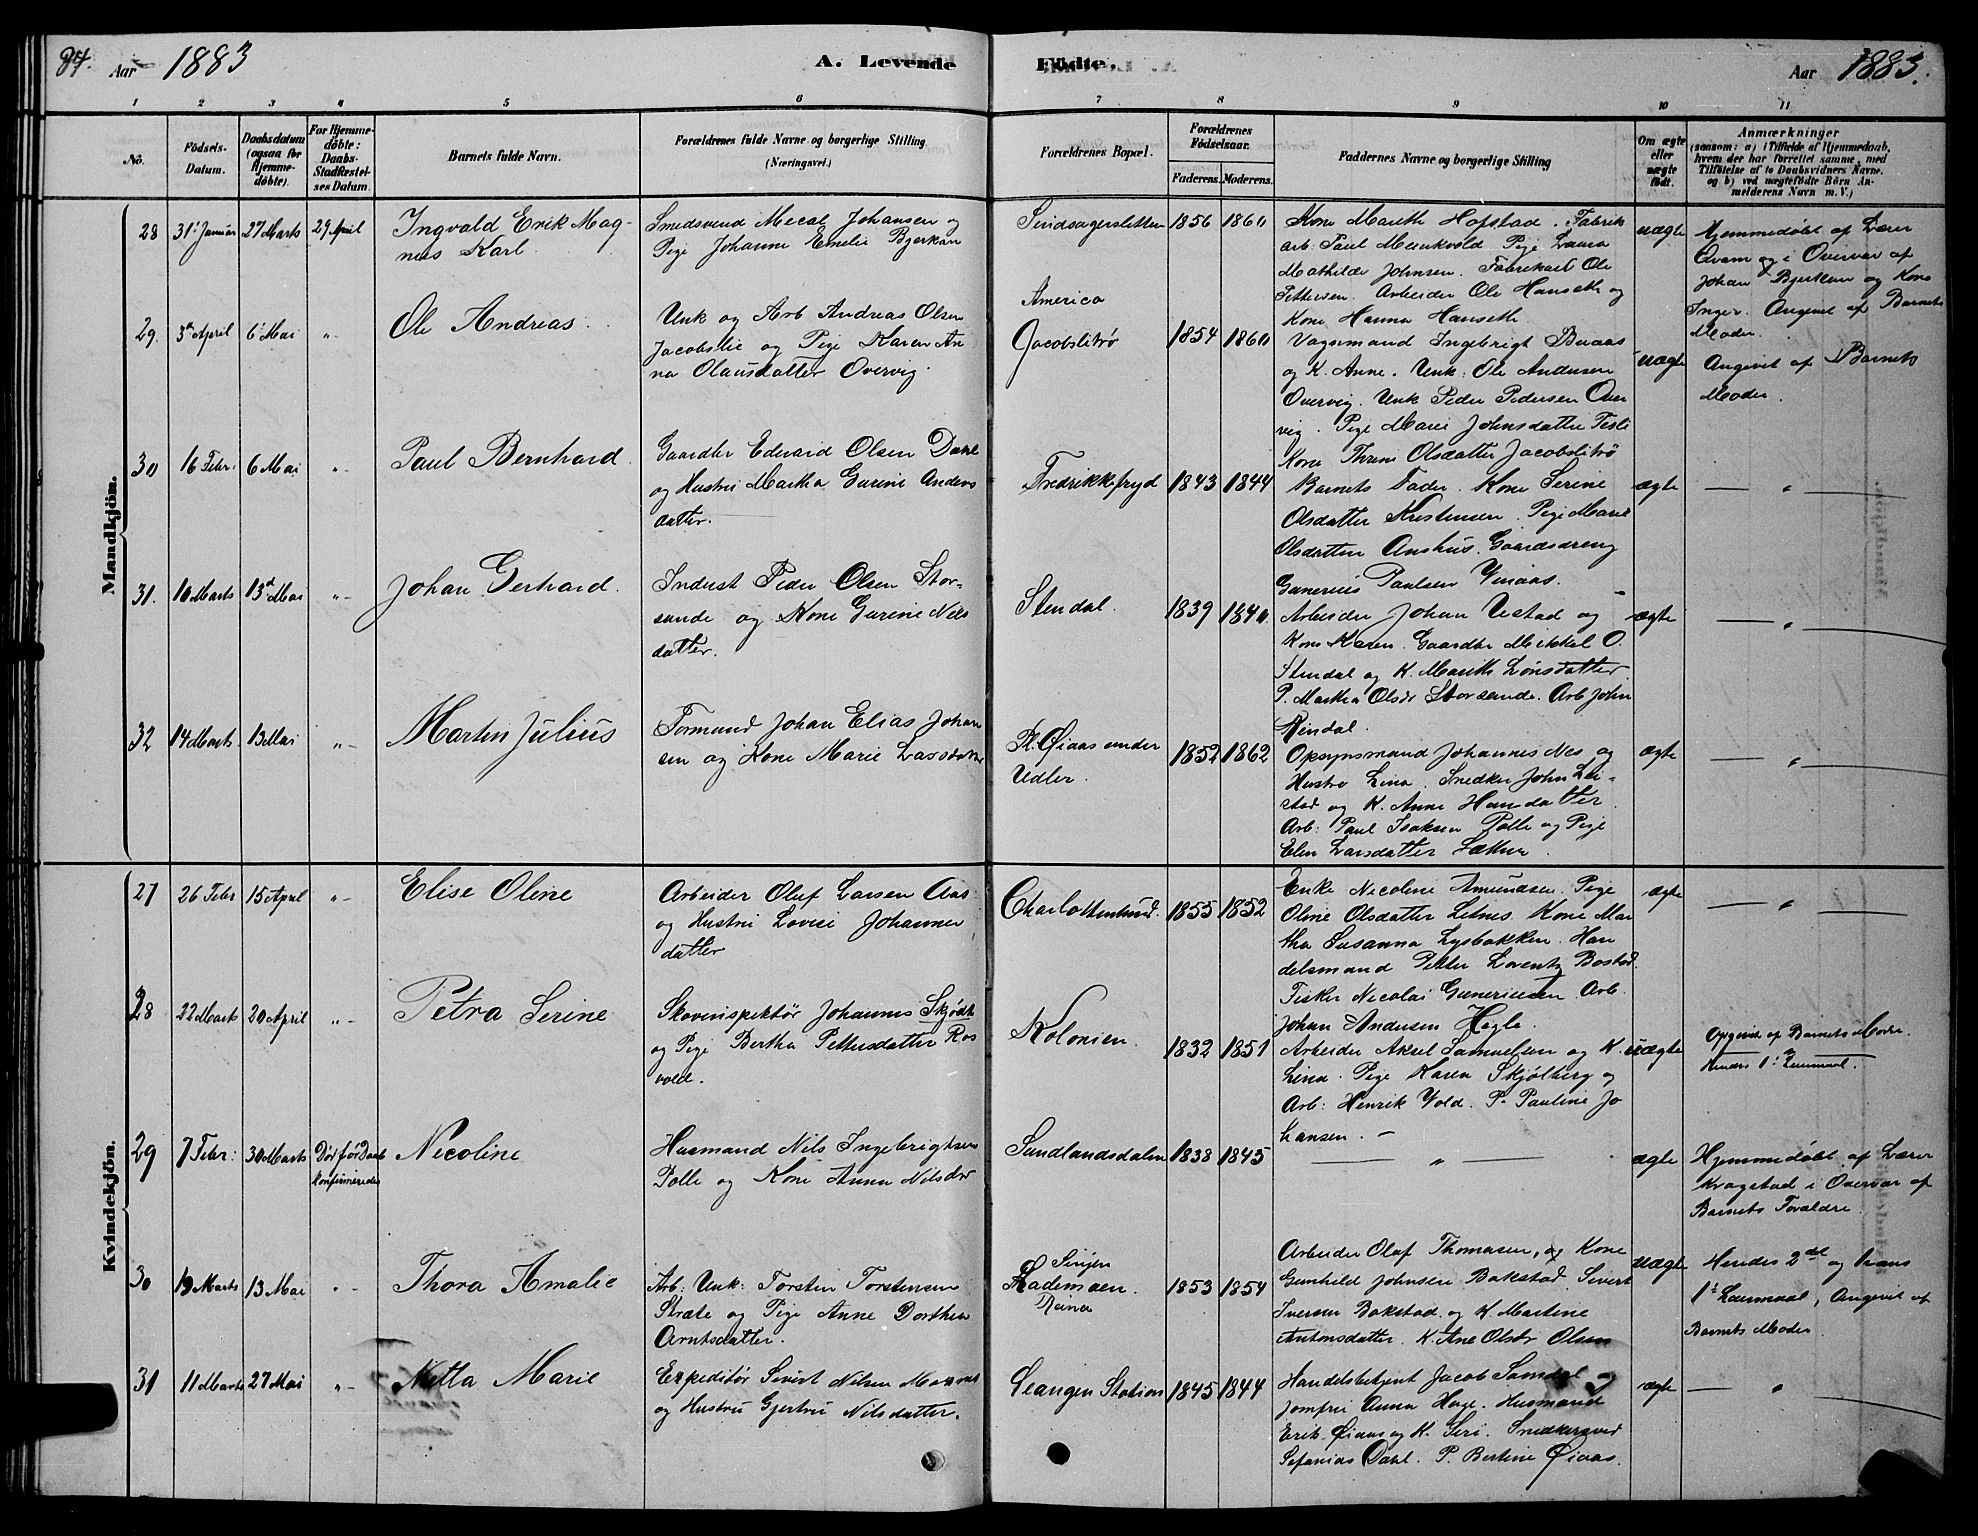 84. Aar 1883 A. Levende Födte. Aar 1883.
1 2 3 4 5 6 7 8 9 10 11
No.
Födsels-
Datum.
Daabsdatum
(ogsaa for
Hjemme-
döbte).
For Hjemme-
döbte:
Daabs-
Stadfæstel-
ses Datum.
Barnets fulde Navn.
Forældrenes fulde Navne og borgerlige Stilling
(Næringsvei.)
Forældrenes Bopæl.
Forældrenes
Födselsaar.
Faderens. Moderens.
Faddernes Navne og borgerlige Stilling
Om ægte
eller
uægte
födt.
Anmærkninger
(saasom: a) i Tilfælde af Hjemmedaab,
hvem der har forrettet samme, med
Tilföielse af to Daabsvidners Navne.
og b) ved uægtefödte Börn An-
melderens Navn m. V.)
Mandkjön.
28 31 Januar 27 Marts 29 April
Ingvald Erik Mag-
nus Karl
Smedsvend Johansen og
Pige Johanne Emelie Bjerkan
1856 1860
Kone Marith Hofstad. Fabrik
arb. Paul Munkvold Pige Laura
Mathilde Johnsen. Fabrikarb Ole
Pettersen. Arbeider Ole Hanseth og
Kone Hanna Hanseth.
uægte
Hjemmedøbt af Lærer
Qvam og i Overvær af
Johan Bjerkan og Kone
Inger. Angivet af Barnets
Moder.
29. 3 April 6 Mai "
Ole Andreas
Unk og Arb Andreas Olsen
Jacobslie og Pige Karen An
na Olausdatter Overvig.
America
Jacobslitrø
1854 1860
Vognmand Ingebrigt Buaas
og K. Anne. Unk: Ole Andersen
Overvig. Unk Peder Pedersen Over
vig. Pige Marie Johnsdatter
Kone Olsdatter Jacobslitrø
uægte
Angivet af Barnets
Moder.
30 16 Febr: 6 Mai "
Paul Bernhard
Gaardbr Edvard Olsen Dahl
og Hustru Martha Gurine Anders
datter.
Fredrikkefryd 1843 1844
Barnets Fader. Kone Serine
Olsdatter Kristensen. Pige Marie
Olsdatter Aushus. Gaardsdreng
Gunerius Paulsen
ægte "
31. 10 Marts 13 Mai "
Johan Gerhard.
Inderst Peder Olsen Stor-
sande og Kone Gurine Nils
datter.
Stendal. 1839 1840
Arbeider Johan Ustad og
Kone Karen. Gaardbr Mikkal O.
Stendal og K. Marith Lønsdatter
P. Martha Olsdr Storsande. Arb John
Rindal.
ægte "
32 14 Marts 13 Mai "
Martin Julius
Formand Johan Elias Johan
sen og Kone Marie Larsdatter
Pl. Øiaas under
Udler.
1852 1862
Opsynsmand Johannes Nes og
Hustro Lina. Snedker John Lei-
stad og K. Anne Hansdatter
Arb: Paul Isaksen Polle og Pige
Elen Larsdatter
ægte "
Kvindekjön.
27 26 Febr 15 April "
Elise Oline
Arbeider Oluf Larsen Aas
og Hustru Lovise Johannes
datter
Charlottenlund. 1855 1852
Enke Nicoline Amundsen. Pige
Oline Olsdatter Letnes. Kone Mar
tha Susanna Lysbakken. Han
delsmand Petter Lorentz Bostad
Fisker Nicolai Guneriusen. Arb.
Johan Andersen Hagle.
ægte "
28 22 Marts 20 April "
Petra Serine
Skovinspektør Johannes Skjødt
og Pige Bertha Pettersdatter Ros
vold.
Kolonien. 1832 1851
Arbeider Aksel Samuelsen og K.
Lina. Pige Karen Skjølberg og
Arb: Henrik Vold. P. Pauline Jo
hansen. –
uægte
Opgivet af Barnets Moder.
1 Leiermaal.
29 7 Febr: 30 Marts Død før Daab
konfirmeredes
Nicoline
Husmand Nils Ingebrigtsen
Polle og Kone Anna Nilsdr
Sundlandsdalen 1838 1845
"
ægte
Hjemmedøbt af Lærer
Kragstad i Overvær af
Barnets Forældre
30 19 Marts 13 Mai "
Thora Amalie
Arb: Unk: Torsten Torstensen
Stræte og Pige Anne Dorthea
Arntsdatter.
Lademoen.
1853 1854
Arbeider Olaf Thomasen, og Kone
Gunhild Johnsen Bakstad. Sivert
Iversen Bakstad og K. Martine
Antonsdatter. K. Ane Olsdr Olsen
uægte
Hendes 2det og hans
1ste Leiermaal, Angivet af
Barnets Moder.
31 11 Marts 27 Mai "
Netta Marie
Expeditør Sivert Nilsen
og Hustru Gjertru Nilsdatter.
Leangen Station 1845 1844
Handelsbetjent Jacob Samdal og
Jomfru Anna Hage. Husmand
Erik Øiaas og K. Siri. Snedkersvend
Stefanias Dahl. P. Bertine Øiaas.
ægte "